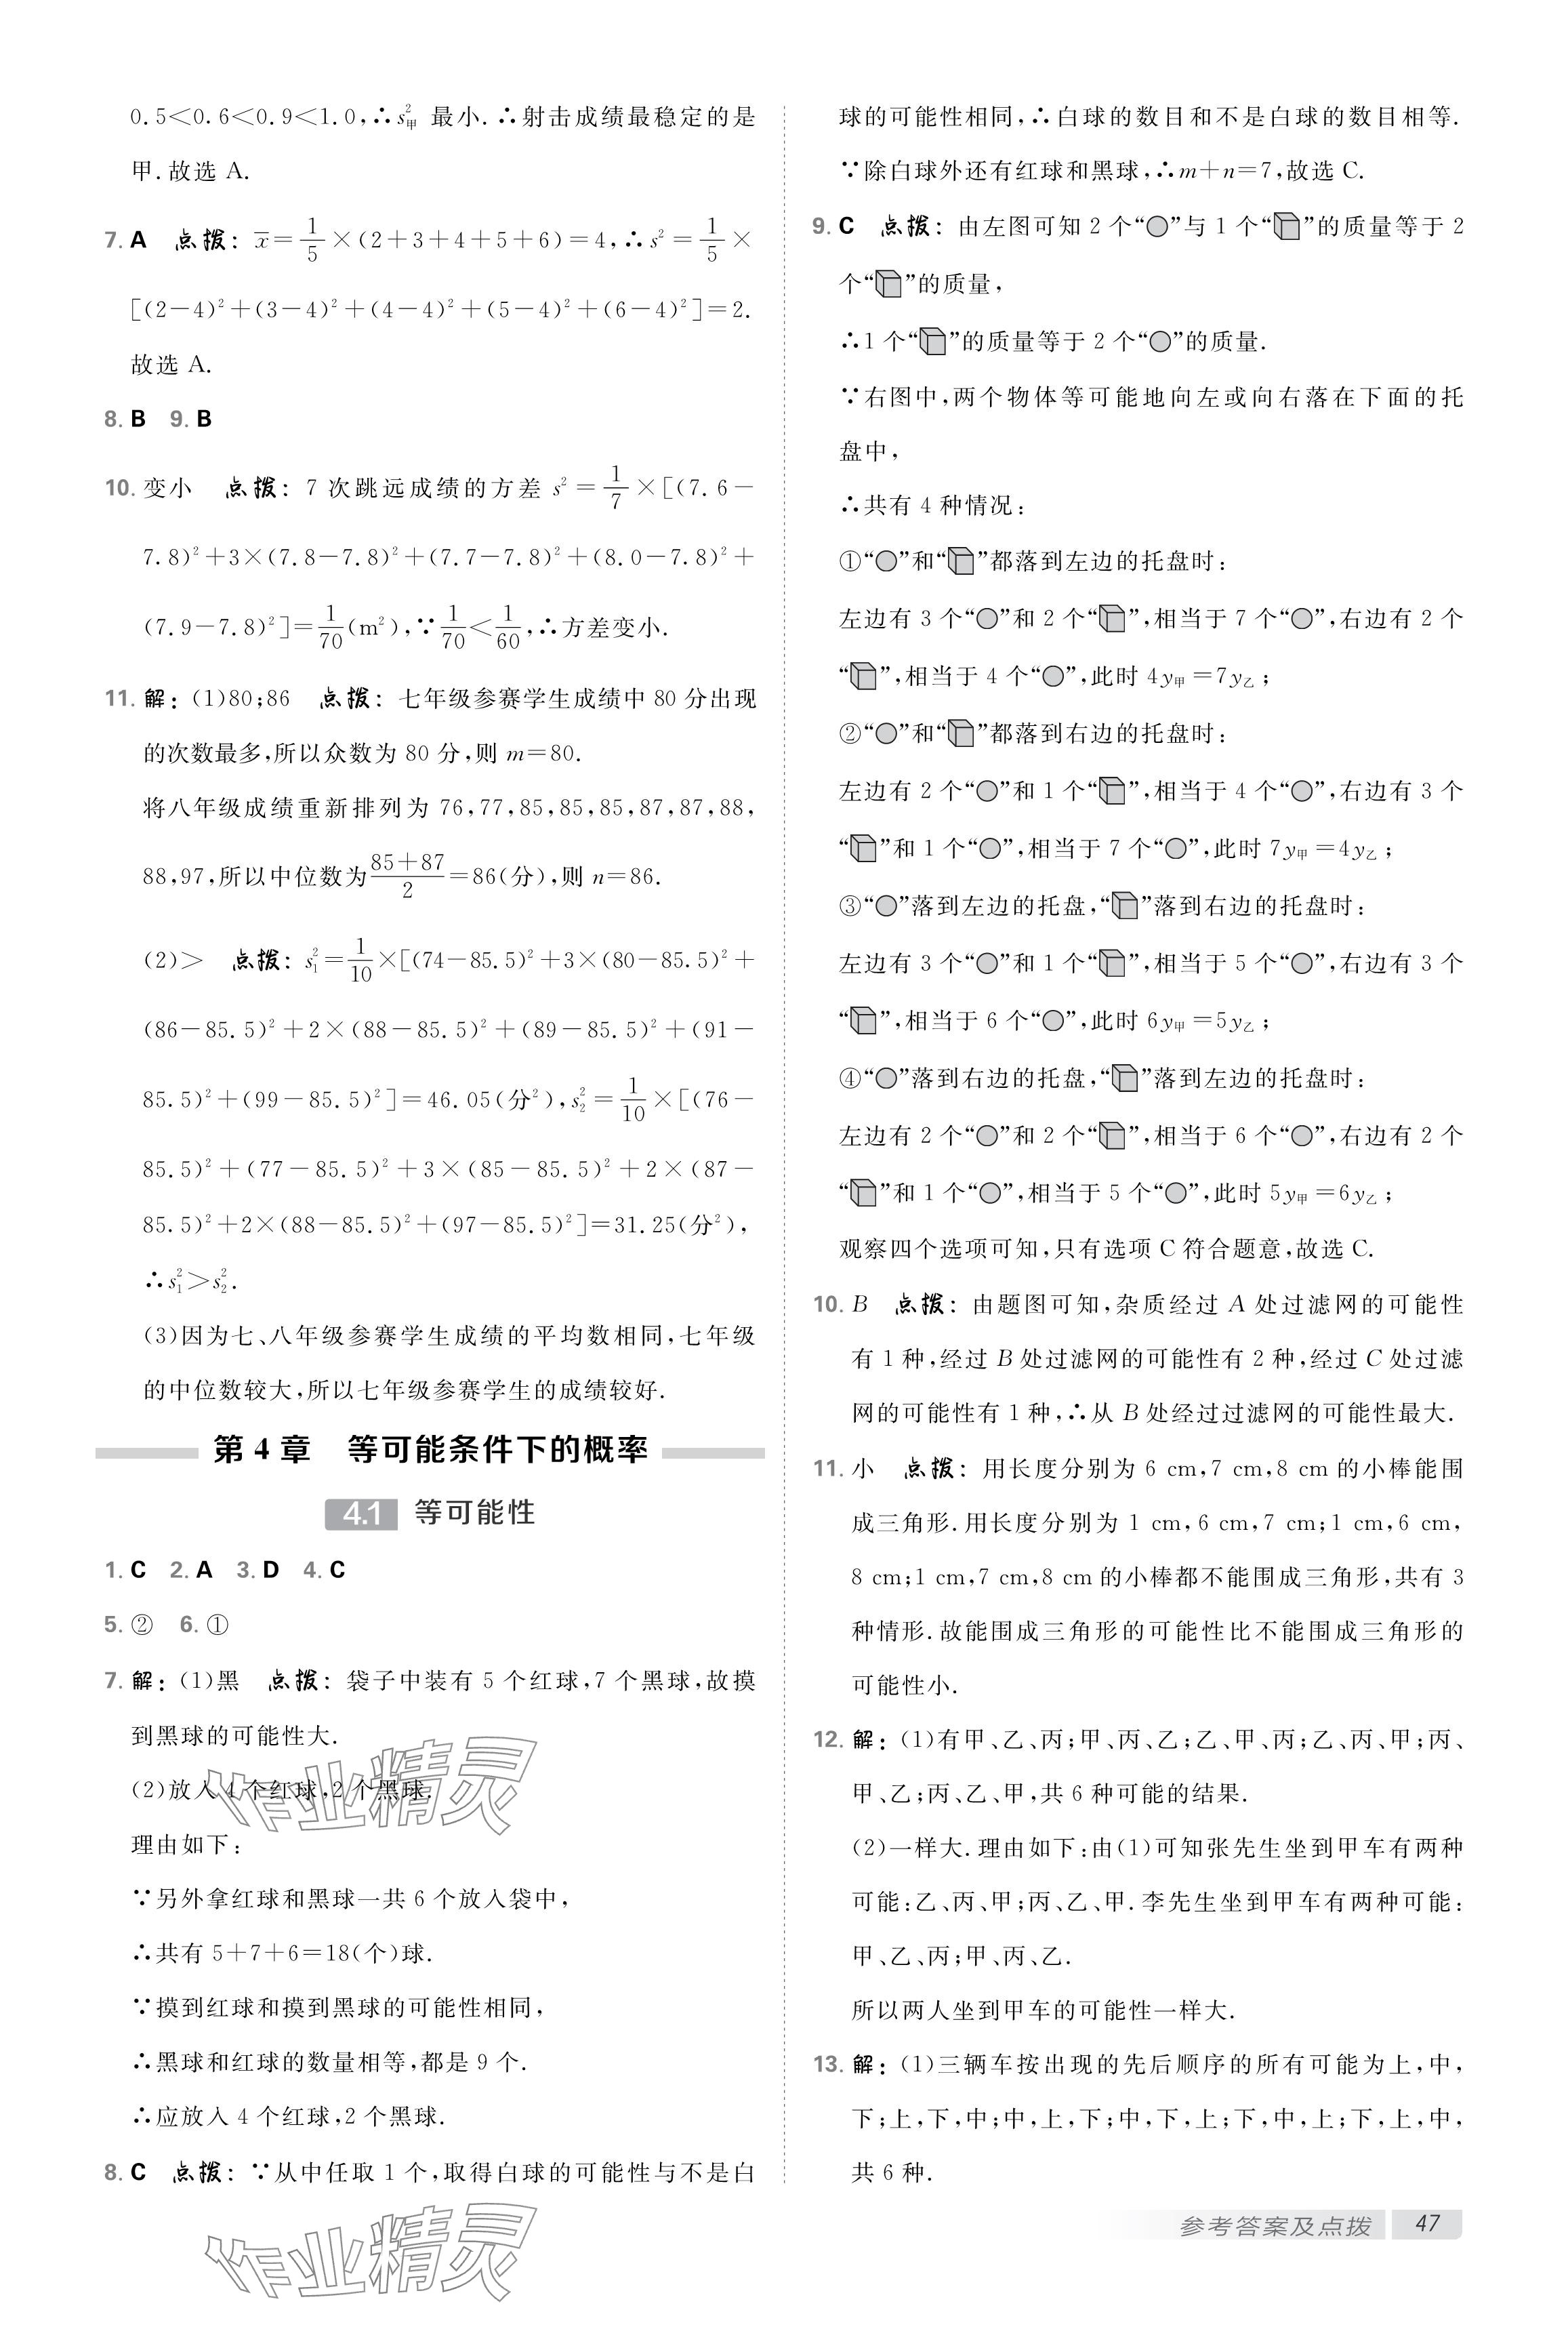 0.5<0.6<0.9<1.0,∴s²甲 最小.∴射击成绩最稳定的是
甲.故选 A.
7. A 点拨：x̄=1/5×(2+3+4+5+6)=4,∴s²=1/5×
[(2-4)²+(3-4)²+(4-4)²+(5-4)²+(6-4)²]=2.
故选 A.
8. B 9. B
10. 变小 点拨：7 次跳远成绩的方差 s²=1/7×[(7.6-
7.8)²+3×(7.8-7.8)²+(7.7-7.8)²+(8.0-7.8)²+
(7.9-7.8)²]=1/70(m²),∵1/70<1/60,∴方差变小.
11. 解：(1)80;86 点拨：七年级参赛学生成绩中 80 分出现
的次数最多,所以众数为 80 分,则 m=80.
将八年级成绩重新排列为 76,77,85,85,85,87,87,88,
88,97,所以中位数为(85+87)/2=86(分),则 n=86.
(2)> 点拨：s₁²=1/10×[(74-85.5)²+3×(80-85.5)²+
(86-85.5)²+2×(88-85.5)²+(89-85.5)²+(91-
85.5)²+(99-85.5)²]=46.05(分²),s₂²=1/10×[(76-
85.5)²+(77-85.5)²+3×(85-85.5)²+2×(87-
85.5)²+2×(88-85.5)²+(97-85.5)²]=31.25(分²),
∴s₁²>s₂².
(3)因为七、八年级参赛学生成绩的平均数相同,七年级
的中位数较大,所以七年级参赛学生的成绩较好.
第 4 章 等可能条件下的概率
4.1 等可能性
1. C 2. A 3. D 4. C
5. ② 6. ①
7. 解：(1)黑 点拨：袋子中装有 5 个红球,7 个黑球,故摸
到黑球的可能性大.
(2)放入 4 个红球,2 个黑球.
理由如下：
∵另外拿红球和黑球一共 6 个放入袋中,
∴共有 5+7+6=18(个)球.
∵摸到红球和摸到黑球的可能性相同,
∴黑球和红球的数量相等,都是 9 个.
∴应放入 4 个红球,2 个黑球.
8. C 点拨：∵从中任取 1 个,取得白球的可能性与不是白
球的可能性相同,∴白球的数目和不是白球的数目相等.
∵除白球外还有红球和黑球,∴m+n=7,故选 C.
9. C 点拨：由左图可知 2 个“”与 1 个“”的质量等于 2
个“”的质量,
∴1 个“”的质量等于 2 个“”的质量.
∵右图中,两个物体等可能地向左或向右落在下面的托
盘中,
∴共有 4 种情况：
①“”和“”都落到左边的托盘时：
左边有 3 个“”和 2 个“”,相当于 7 个“”,右边有 2 个
“”,相当于 4 个“”,此时 4y甲=7y乙;
②“”和“”都落到右边的托盘时：
左边有 2 个“”和 1 个“”,相当于 4 个“”,右边有 3 个
“”和 1 个“”,相当于 7 个“”,此时 7y甲=4y乙;
③“”落到左边的托盘,“”落到右边的托盘时：
左边有 3 个“”和 1 个“”,相当于 5 个“”,右边有 3 个
“”,相当于 6 个“”,此时 6y甲=5y乙;
④“”落到右边的托盘,“”落到左边的托盘时：
左边有 2 个“”和 2 个“”,相当于 6 个“”,右边有 2 个
“”和 1 个“”,相当于 5 个“”,此时 5y甲=6y乙;
观察四个选项可知,只有选项 C 符合题意,故选 C.
10. B 点拨：由题图可知,杂质经过 A 处过滤网的可能性
有 1 种,经过 B 处过滤网的可能性有 2 种,经过 C 处过滤
网的可能性有 1 种,∴从 B 处经过过滤网的可能性最大.
11. 小 点拨：用长度分别为 6 cm,7 cm,8 cm 的小棒能围
成三角形.用长度分别为 1 cm,6 cm,7 cm;1 cm,6 cm,
8 cm;1 cm,7 cm,8 cm 的小棒都不能围成三角形,共有 3
种情形.故能围成三角形的可能性比不能围成三角形的
可能性小.
12. 解：(1)有甲、乙、丙;甲、丙、乙;乙、甲、丙;乙、丙、甲;丙、
甲、乙;丙、乙、甲,共 6 种可能的结果.
(2)一样大.理由如下：由(1)可知张先生坐到甲车有两种
可能：乙、丙、甲;丙、乙、甲.李先生坐到甲车有两种可能：
甲、乙、丙;甲、丙、乙.
所以两人坐到甲车的可能性一样大.
13. 解：(1)三辆车按出现的先后顺序的所有可能为上,中,
下;上,下,中;中,上,下;中,下,上;下,中,上;下,上,中,
共 6 种.
参考答案及点拨 47
作业精灵
作业精灵